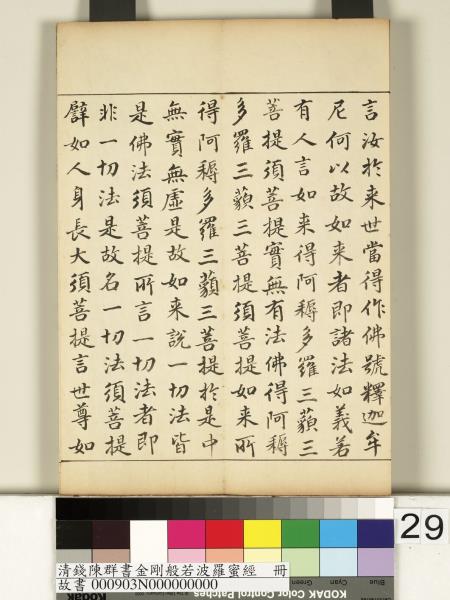 言汝於来世當得作佛號釋迦牟
尼何以故如来者即諸法如義若
有人言如来得阿耨多羅三藐三
菩提須菩提實無有法佛得阿耨
多羅三藐三菩提須菩提如来所
得阿耨多羅三藐三菩提於是中
無實無虛是故如来說一切法皆
是佛法須菩提所言一切法者即
非一切法是故名一切法須菩提
譬如人身長大須菩提言世尊如
29
Blue
Cyan
Green
KODAK Color Control Patches
清錢陳群書金剛般若波羅蜜經 冊
故書 000903N000000000